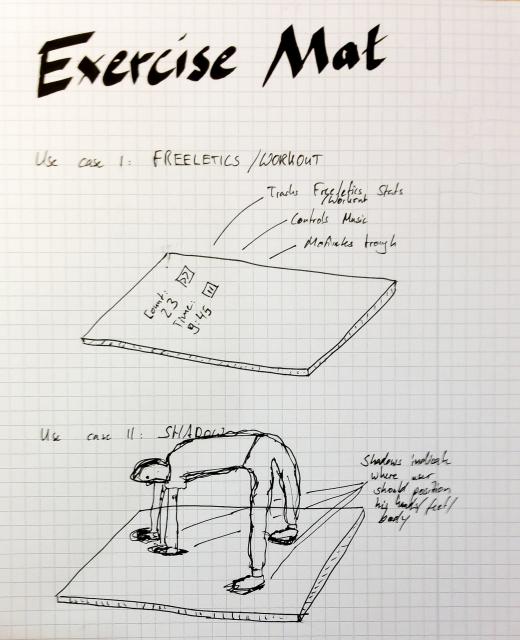 Exercise Mat
Use case I: FREELETICS /WORKOUT
Tracks Freeletics Stats
/Workout
Controls Music
Motivates trough
Count:
23
Time:
9:45
Use case II: SHADOW
Shadows indicate
where user
should position
his hands/ feet/
body